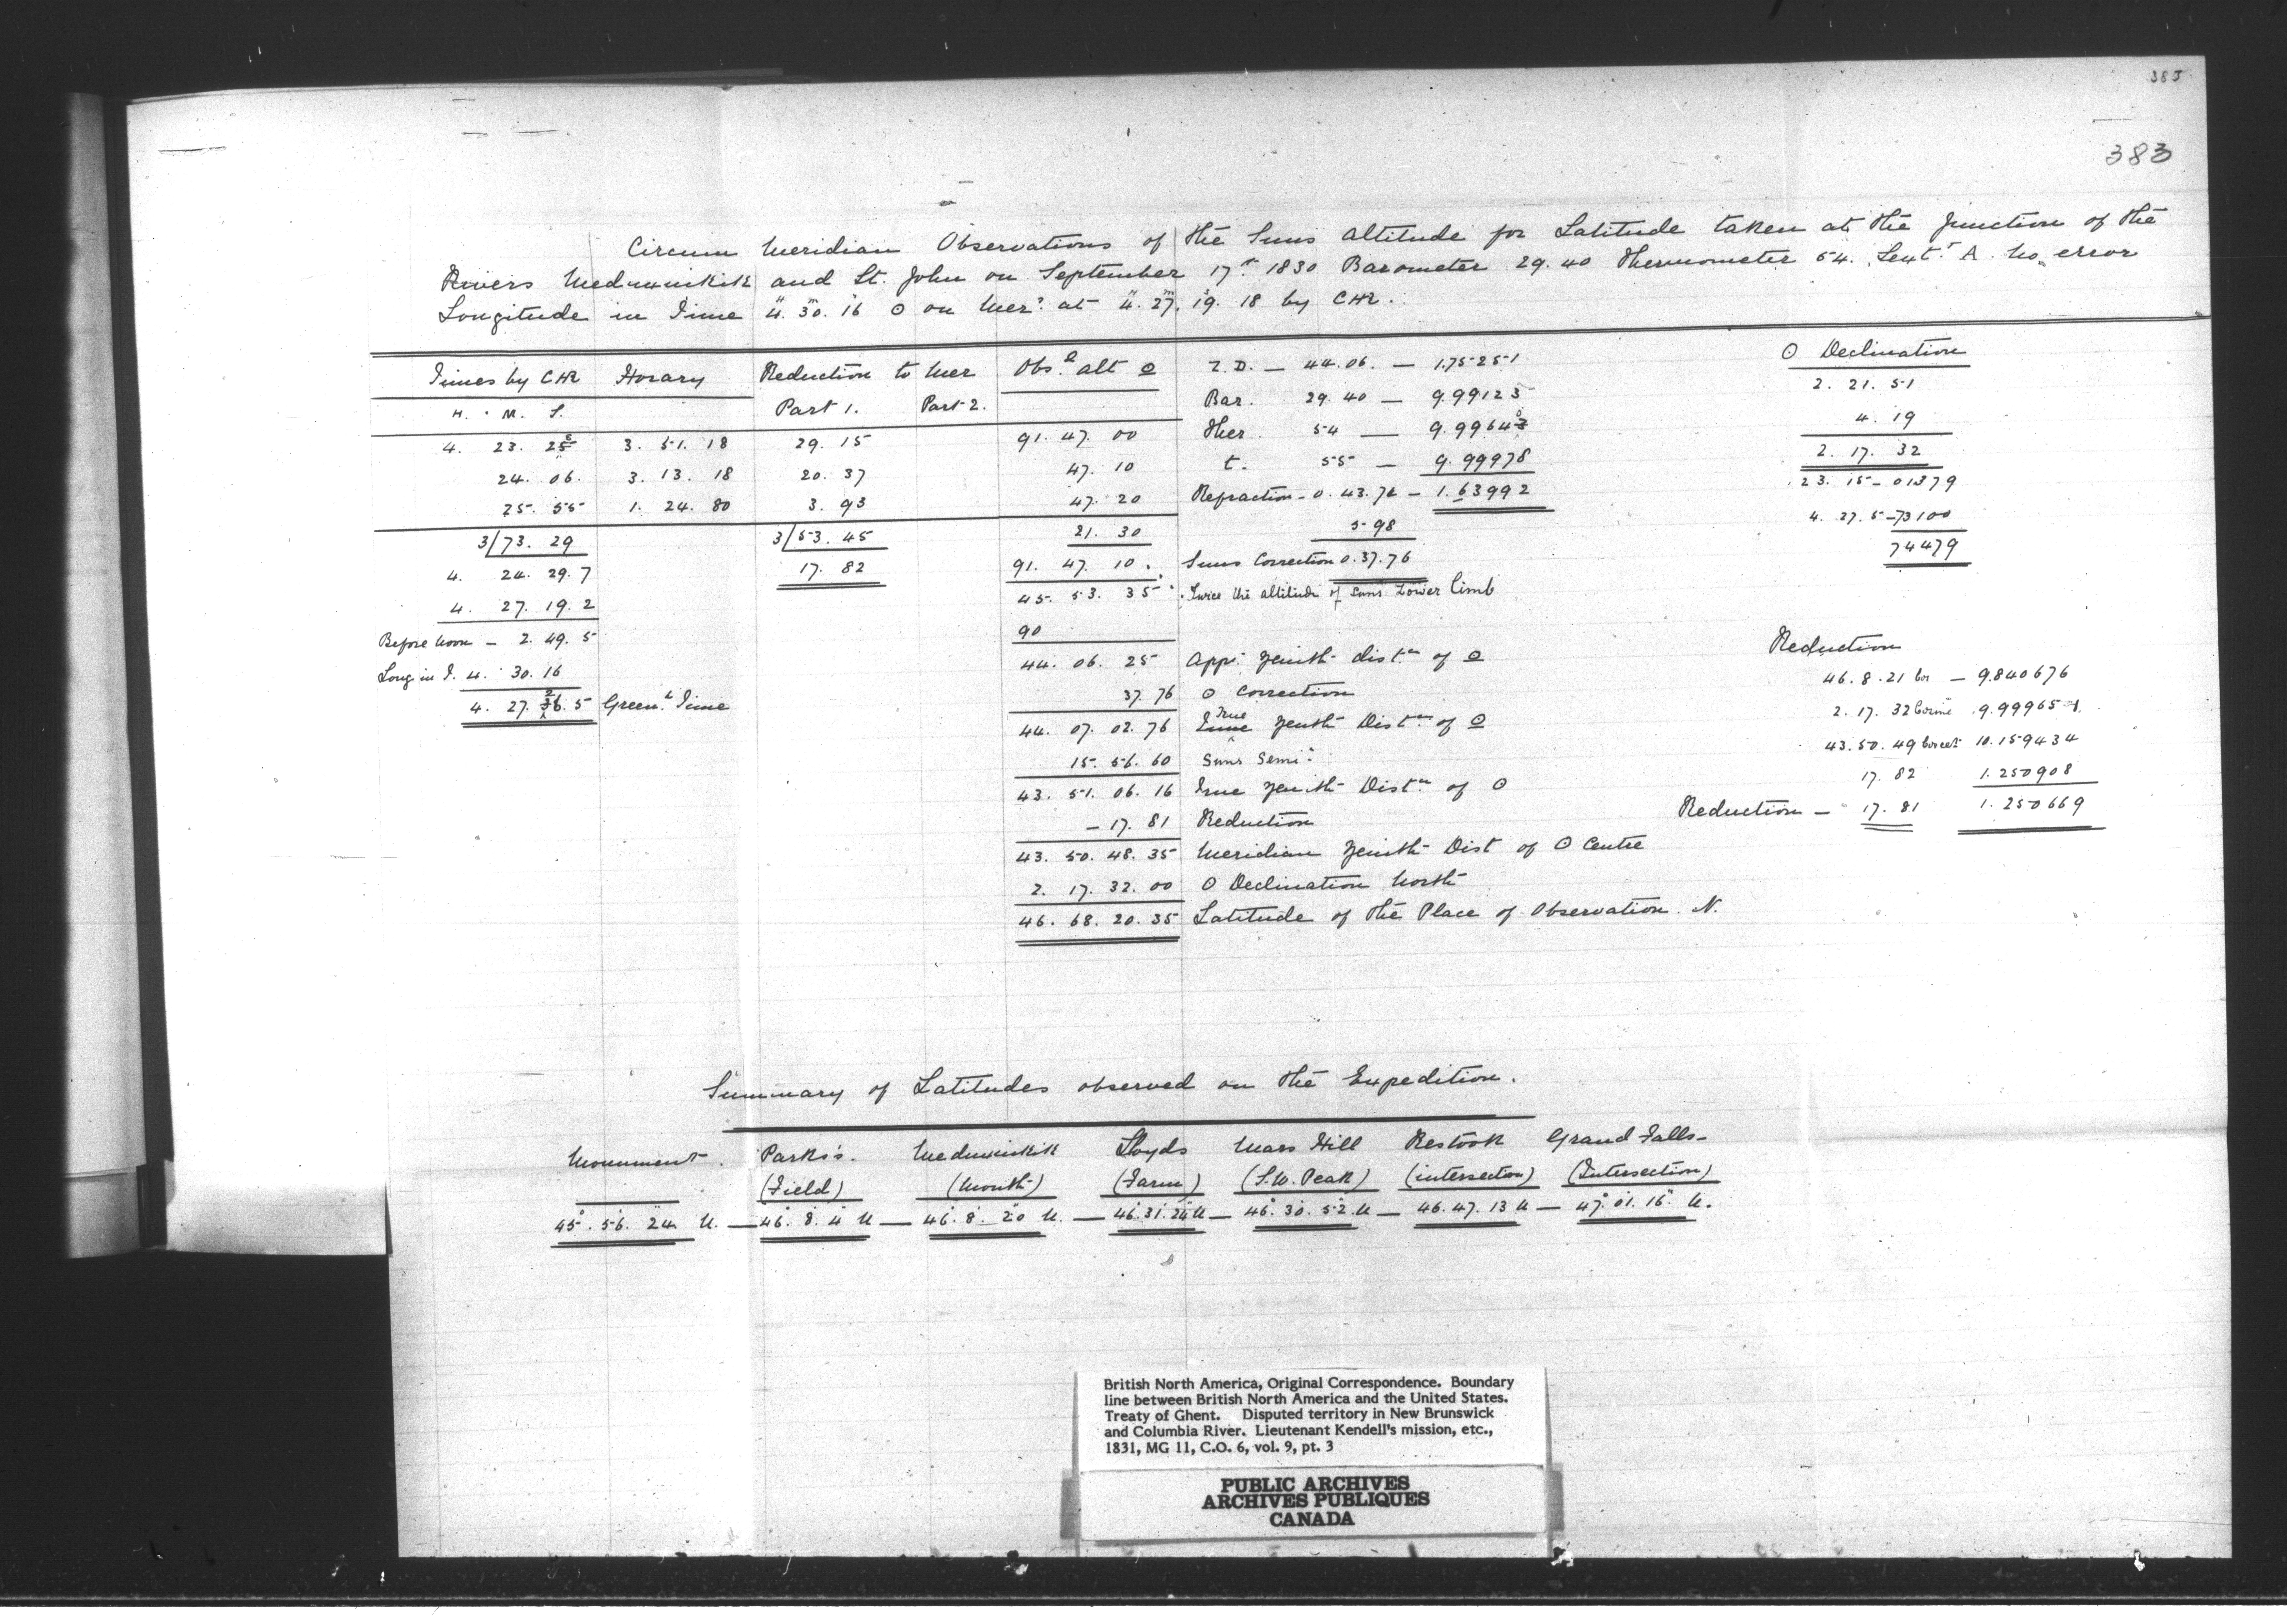 385
383
Circum Meridian Observations of the Suns Altitude for Latitude taken at the Junction of the
Rivers Meduxnikik and St. John on September 17th 1830 Barometer 29.40 Thermometer 54. Sextt A. No error
Longitude in Time 4. 30. 16 ☉ on Mer: at 4. 27. 19. 18 by CHR.
Times by CHR Horary Reduction to Mer Obsd alt ☉ Z.D. — 44.06. — 1.75251 ☉ Declination
H. M. S. Part 1. Part 2. Bar. 29.40 — 9.99123 2. 21. 51
4. 23. 28 3. 51. 18 29. 15 91. 47. 00 Ther 54 — 9.99640 4. 19
24. 06. 3. 13. 18 20. 37 47. 10 t. 55 — 9.99978 2. 17. 32
25. 55 1. 24. 80 3. 93 47. 20 Refraction - 0. 43. 72 - 1.63992 23. 15 - 01379
3/73. 29 3/53. 45 21. 30 5.98 4. 27. 5 - 73100
4. 24. 29. 7 17. 82 91. 47. 10. Suns Correction 0. 37. 76 74479
4. 27. 19. 2 45. 53. 35 Twice the altitude of Suns Lower limb
Before Noon — 2. 49. 5 90 Reduction
Long in T. 4. 30. 16 44. 06. 25 Appt. Zenith distce of ☉ 46. 8. 21 cos — 9.840676
4. 27. 26. 5 Greenh Time 37. 76 ☉ Correction 2. 17. 32 cosine 9.999651
44. 07. 02. 76 True Zenith Distce of ☉ 43. 50. 49 cosect 10.159434
15. 56. 60 Suns Semi: 17. 82 1.250908
43. 51. 06. 16 True Zenith Distce of ☉ Reduction — 17. 81 1.250669
— 17. 81 Reduction
43. 50. 48. 35 Meridian Zenith Dist of ☉ Centre
2. 17. 32. 00 ☉ Declination North
46. 68. 20. 35 Latitude of the Place of Observation N.
Summary of Latitudes observed on the Expedition.
Monument. Parks's. Meduxnikik Lloyds Mars Hill Restook Grand Falls-
(Field) (Mouth) (Farm) (S.W. Peak) (intersection) (Intersection)
45. 56. 24 N. — 46. 8. 4 N — 46. 8. 20 N. — 46. 31. 24 N — 46. 30. 52. N — 46. 47. 13 N — 47. 01. 16. N.
British North America, Original Correspondence. Boundary
line between British North America and the United States.
Treaty of Ghent. Disputed territory in New Brunswick
and Columbia River. Lieutenant Kendell's mission, etc.,
1831, MG 11, C.O. 6, vol. 9, pt. 3
PUBLIC ARCHIVES
ARCHIVES PUBLIQUES
CANADA